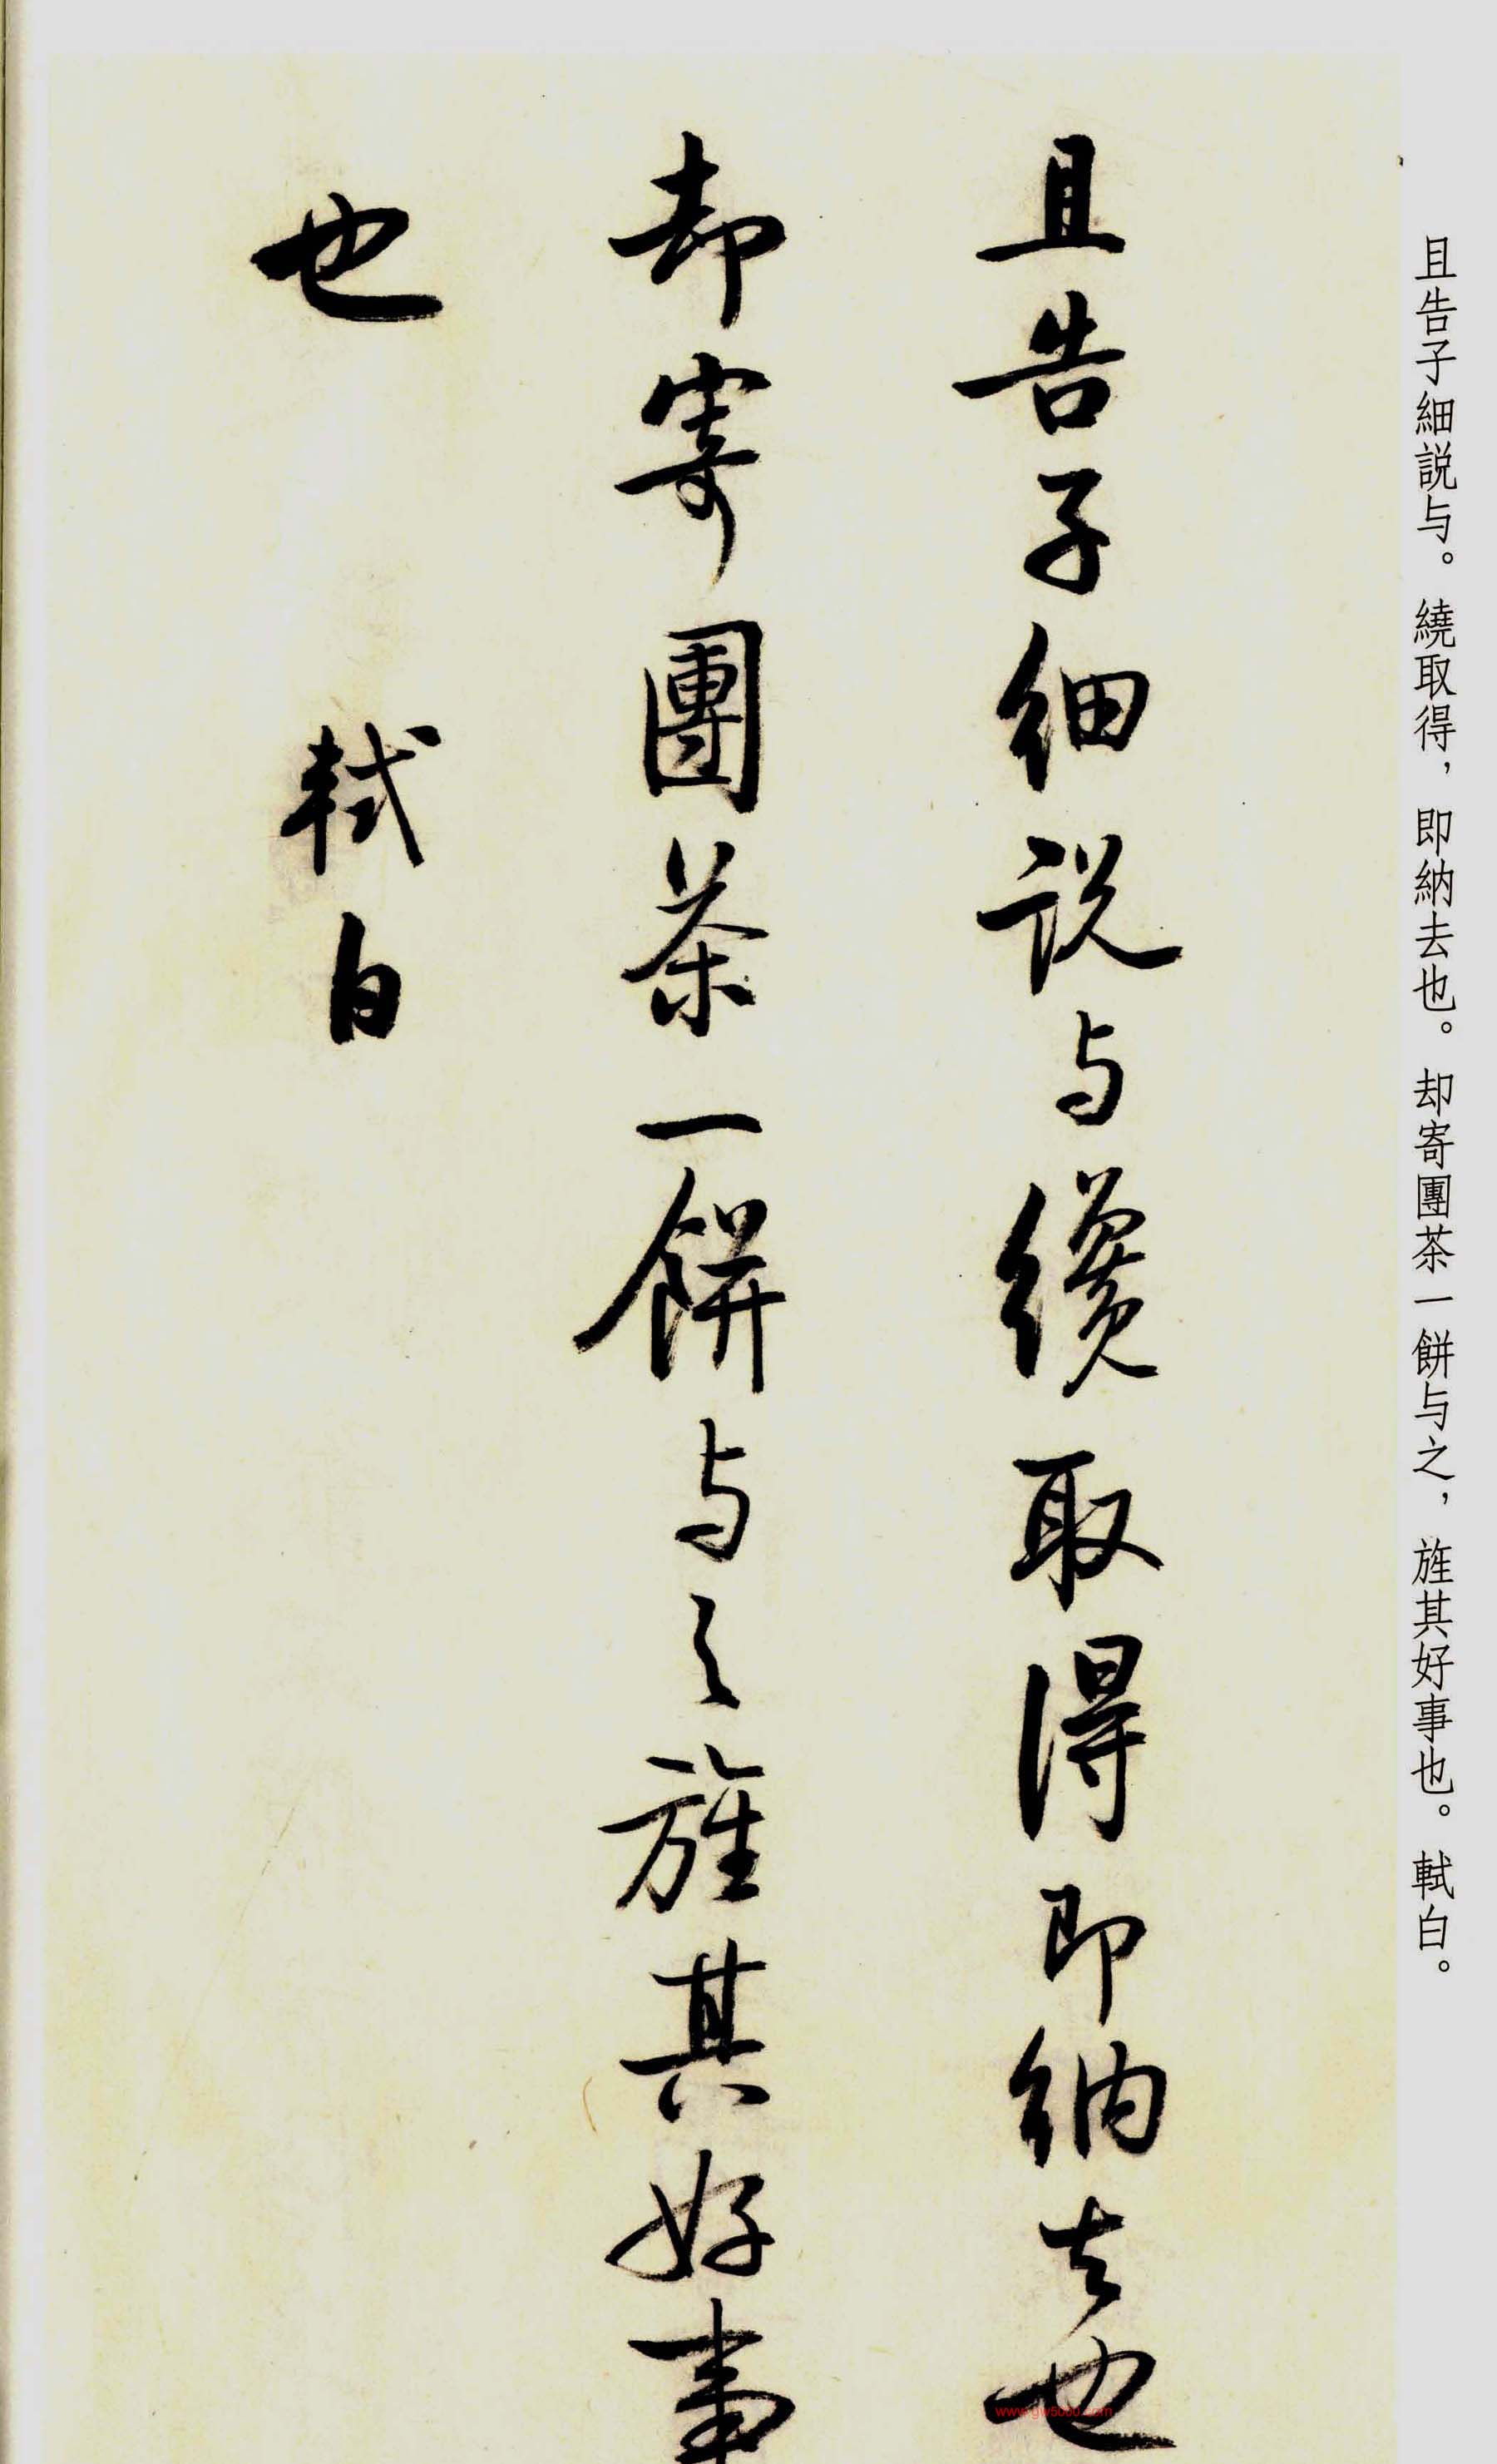 且告子細説与。繞取得，即納去也。却寄團茶一餅与之，旌其好事也。軾白。
且告子細説与纔取得即納去也
却寄團茶一餅与之旌其好事
也 軾白
www.gw5000.com